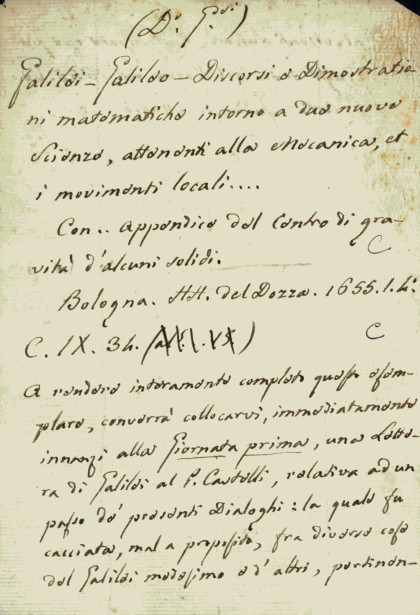 (D.r G.si)
Galilei - Galileo - Discorsi e Dimostratio-
ni matematiche intorno a due nuove
Scienze, attenenti alla Mecanica, et
i movimenti locali....
Con.. appendice del Centro di gra-
vità d'alcuni solidi.
C
Bologna. HH. del Dozza. 1655. 1. 4.º
C. IX. 34.
C
A rendere interamente completo questo esem-
plare, converrà collocarvi, immediatamente
innanzi alla Giornata prima, una Lette-
ra di Galilei al P. Castelli, relativa ad un
passo de' presenti Dialoghi: la quale fu
cacciata, mal a proposito, fra diverse cose
del Galilei medesimo e d'altri, pertinen-